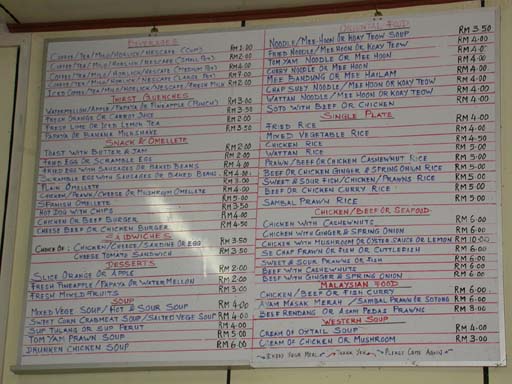 BEVERAGES
COFFEE/TEA/MILO/HORLICK/NESCAFE (CUP) RM 2.00
COFFEE/TEA/MILO/HORLICK/NESCAFE (SMALL POT)
COFFEE/TEA/MILO/HORLICK/NESCAFE (MEDIUM POT)
COFFEE/TEA/MILO/HORLICK/NESCAFE (LARGE POT)
ICED COFFEE/TEA/MILO/HORLICK/NESCAFE/FRESH MILK RM 2.00
THIRST QUENCHES
WATERMELON/APPLE/PAPAYA OR PINEAPPLE (PUNCH) RM 3.00
FRESH ORANGE OR CARROT JUICE RM 3.50
FRESH LIME OR ICED LEMON TEA RM 2.00
PAPAYA OR BANANA MILKSHAKE RM 3.50
SNACK & OMELETTE
TOAST WITH BUTTER & JAM RM 2.00
FRIED EGG OR SCRAMBLE EGG RM 2.00
FRIED EGG WITH SAUSAGES OR BAKED BEANS RM 4.00
SCRAMBLE EGG WITH SAUSAGES OR BAKED BEANS RM 4.00
PLAIN OMELETTE RM 3.00
CHICKEN/PRAWN/CHEESE OR MUSHROOM OMELETTE RM 4.50
SPANISH OMELETTE RM 5.00
HOT DOG WITH CHIPS RM 3.50
CHICKEN OR BEEF BURGER RM 4.00
CHEESE BEEF OR CHICKEN BURGER RM 4.50
SANDWICHES
CHOICE OF: CHICKEN/CHEESE/SARDINE OR EGG RM 3.50
CHEESE TOMATO SANDWICH RM 3.50
DESSERTS
SLICE ORANGE OR APPLE RM 2.00
FRESH PINEAPPLE/PAPAYA OR WATERMELON RM 2.00
FRESH MIXED FRUITS RM 3.00
SOUP
MIXED VEGE SOUP/HOT & SOUR SOUP RM 4.00
SWEET CORN CRABMEAT SOUP/SALTED VEGE SOUP RM 4.00
SUP TULANG OR SUP PERUT RM 4.00
TOM YAM PRAWN SOUP RM 5.00
DRUNKEN CHICKEN SOUP RM 6.00
ORIENTAL FOOD
NOODLE/MEE HOON OR KOAY TEOW SOUP RM 3.50
FRIED NOODLE/MEE HOON OR KOAY TEOW RM 4.00
TOM YAM NOODLE OR MEE HOON RM 4.00
CURRY NOODLE OR MEE HOON RM 4.00
MEE BANDUNG OR MEE HAILAM RM 4.00
CHAP SUEY NOODLE/MEE HOON OR KOAY TEOW RM 4.00
WATTAN NOODLE/MEE HOON OR KOAY TEOW RM 4.00
SOTO WITH BEEF OR CHICKEN RM 4.00
SINGLE PLATE
FRIED RICE RM 4.00
MIXED VEGETABLE RICE RM 4.00
CHICKEN RICE RM 4.50
WATTAN RICE RM 5.00
PRAWN/BEEF OR CHICKEN CASHEWNUT RICE RM 5.00
BEEF OR CHICKEN GINGER & SPRING ONION RICE RM 5.00
SWEET & SOUR FISH/CHICKEN/PRAWNS RICE RM 5.00
BEEF OR CHICKEN CURRY RICE RM 5.00
SAMBAL PRAWN RICE RM 5.00
CHICKEN/BEEF OR SEAFOOD
CHICKEN WITH CASHEWNUTS RM 6.00
CHICKEN WITH GINGER & SPRING ONION RM 6.00
CHICKEN WITH MUSHROOM OR OYSTER SAUCE OR LEMON RM 10.00
SE CHAP PRAWN OR FISH OR CUTTLEFISH RM 6.00
SWEET & SOUR PRAWNS OR FISH RM 6.00
BEEF WITH CASHEWNUTS RM 6.00
BEEF WITH GINGER & SPRING ONION RM 6.00
MALAYSIAN FOOD
CHICKEN/BEEF OR FISH CURRY RM 6.00
AYAM MASAK MERAH/SAMBAL PRAWN OR SOTONG RM 6.00
BEEF RENDANG OR ASAM PEDAS PRAWNS RM 3.00
WESTERN SOUP
CREAM OF OXTAIL SOUP RM 4.00
CREAM OF CHICKEN OR MUSHROOM RM 3.00
ENJOY YOUR MEAL THANK YOU PLEASE COME AGAIN